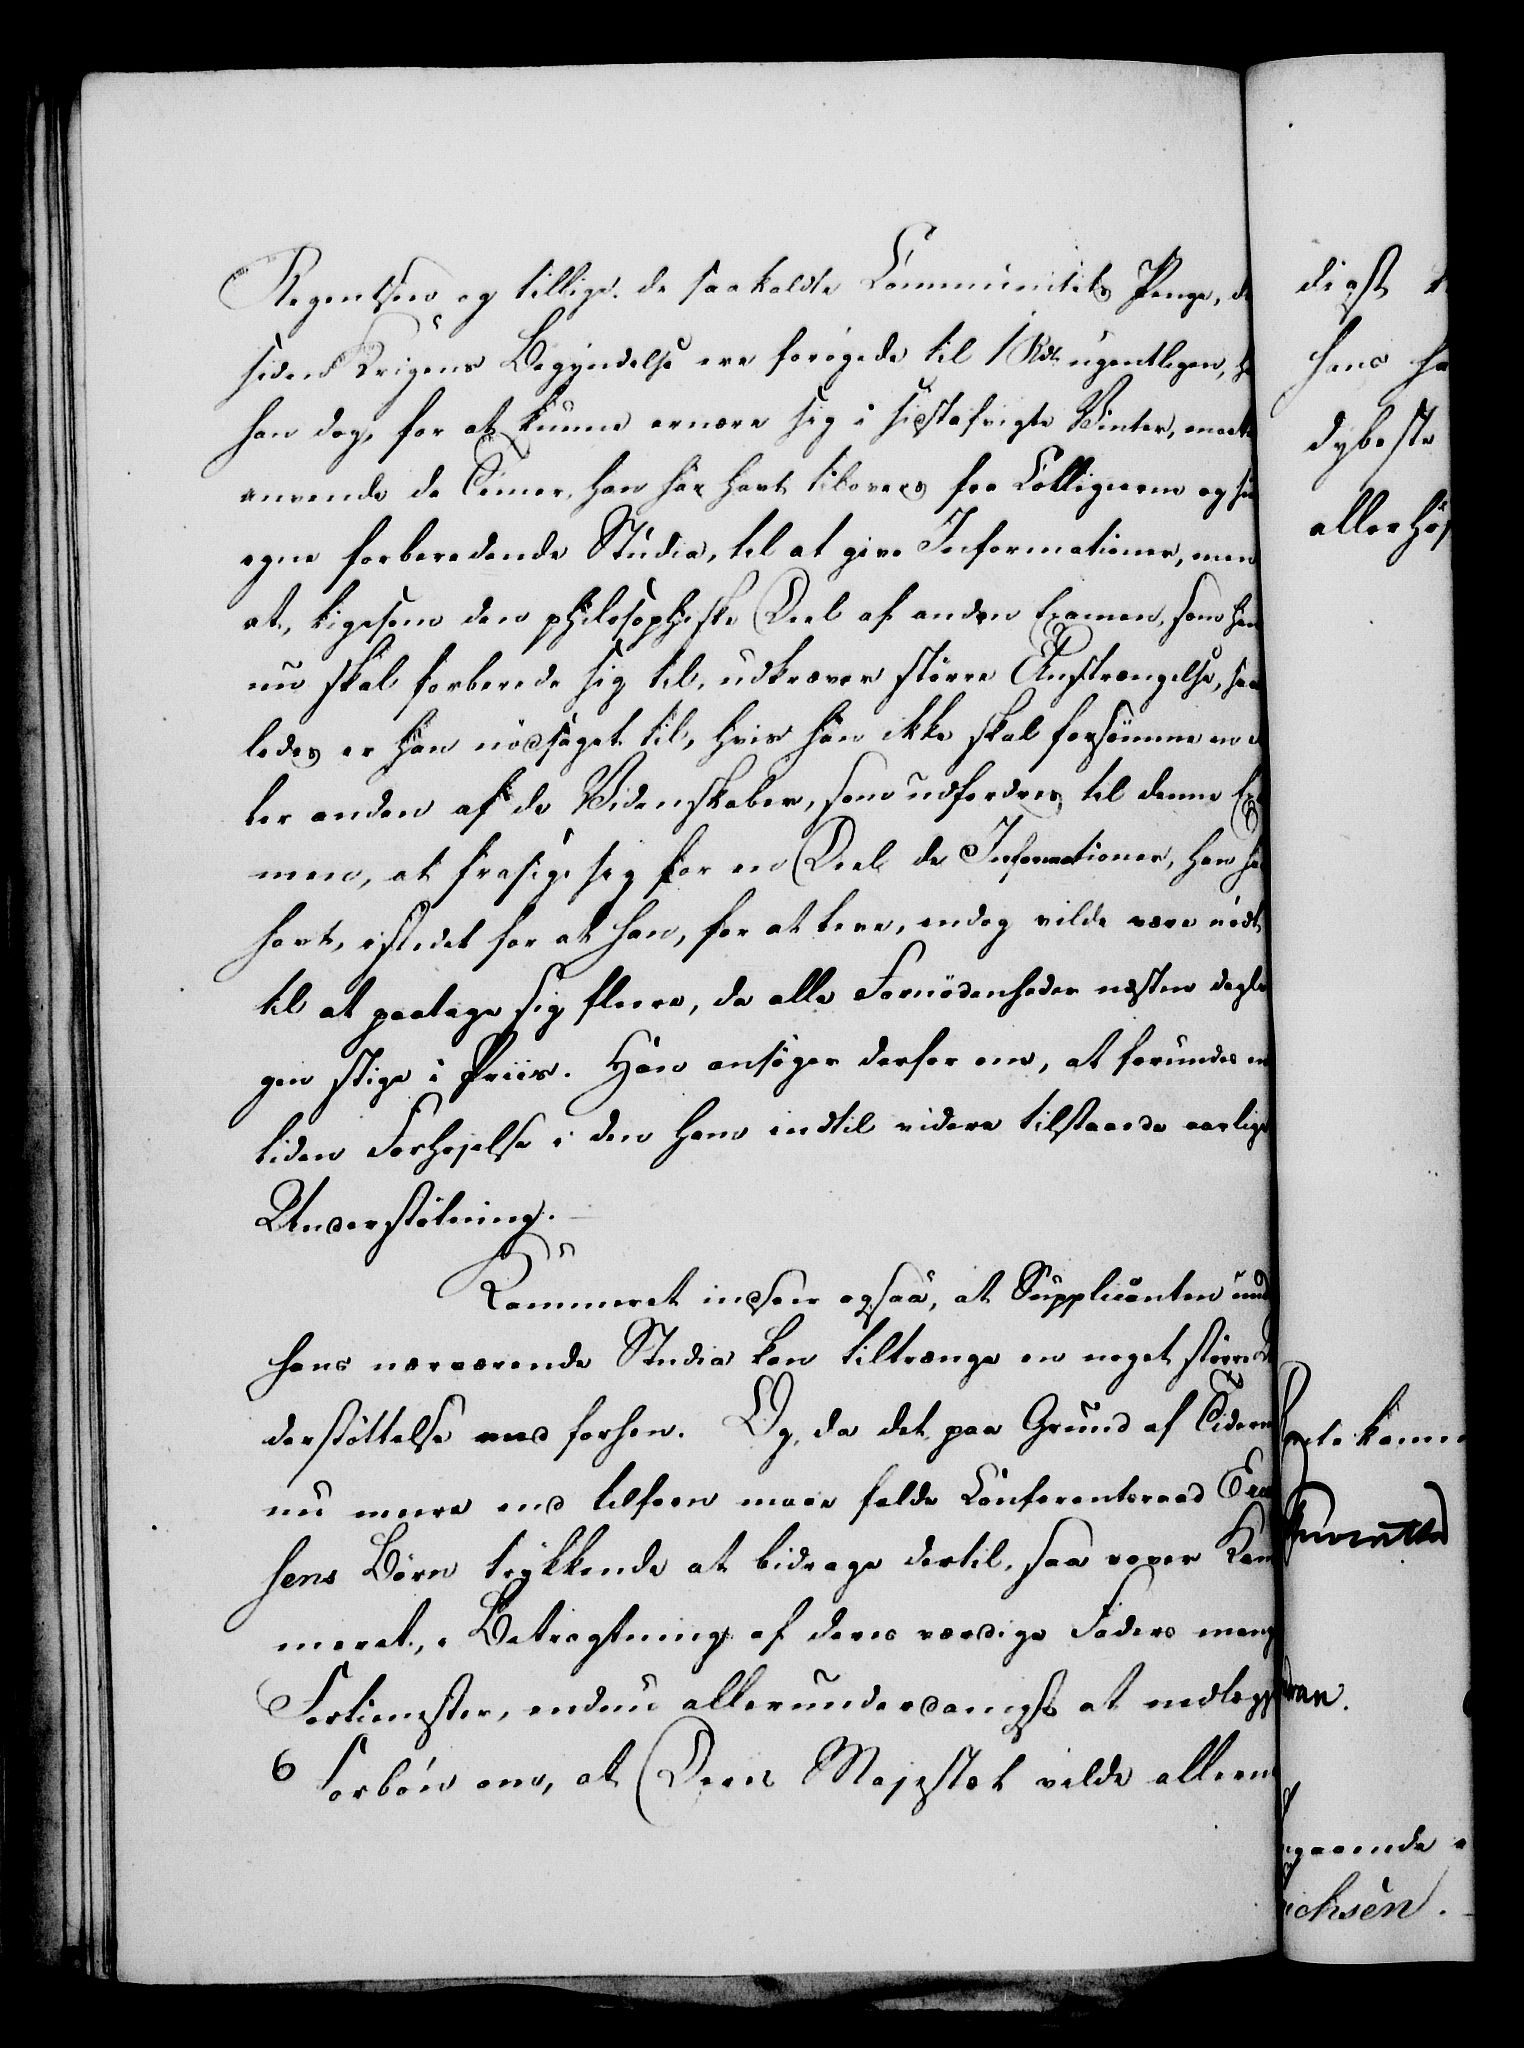 Regentsen og tillige de saakaldte Communitets Penge, de
siden Krigens Begyndelse ere forøgede til 1 Rdr ugentligen, ha
han dog, for at kunne ernære sig i sidstafvigte Vinter, maatte
anvende de Timer, han har havt tilovers fra Collegierne og sin
egne forberedende Studia, til at give Informationer, men
at, ligesom den philosophiske Deel af anden Examen, som han
nu skal forberede sig til, udkræver større Anstrængelse, saa
ledes er han nødsaget til, hvis han ikke skal forsømme en e
ler anden af de Videnskaber, som udfordres til denne Exa
men, at frasige sig for en Deel de Informationer, han ha
havt, istedet for at han, for at leve, endog vilde være nødt
til at paatage sig flere, da alle Fornødenheder næsten dagli
gen stige i Priis. Han ansøger derfor om, at forundes en
liden Forhøjelse i den ham indtil videre tilstaaede aarlige
Understøtning.
Kammeret indseer ogsaa, at Supplicanten und
hans nærværende Studia kan tiltrænge en noget større Un
derstøttelse end forhen. Og, da det paa Grund af Tidern
nu meere end tilforn maae falde Conferentsraad Erich
sens Børn trykkende at bidrage dertil, saa vover Kam
meret, i Betragtning af deres værdige Faders mang
Fortienester, endnu allerunderdanigst at nedlægge
6 Forbøn om, at Deres Majestæt vilde allern
digst
hans ha
dybeste
allerhøj
rete kamm
dran.
gaaende
ichsen.